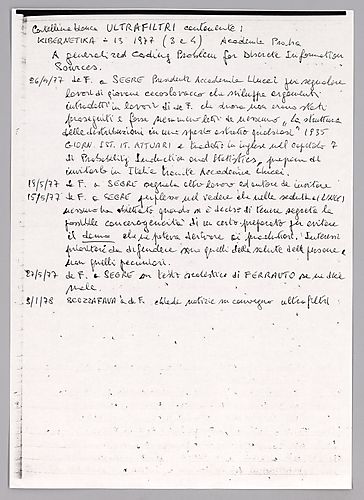 Cartellina bianca ULTRAFILTRI contenente:
KIBERNETIKA - 13 1977 (3 e 4) Academia Praha
A generalized Coding Problem for Discrete Information
Sources.
26/4/77 de F. a SEGRE Presidente Accademia Lincei per segnalare
lavori di giovane cecoslovacco che sviluppa argomenti
introdotti in lavori di de F. che finora non erano stati
proseguiti e forse nemmeno letti da nessuno, "la struttura
delle distribuzioni in uno spazio astratto qualsiasi" 1935
GIORN. IST. IT. ATTUARI e tradotto in inglese nel capitolo 7
di Probability Induction and Statistics, propone di
invitarlo in Italia tramite Accademia Lincei.
13/5/77 de F. a SEGRE segnala altro lavoro ed autore da invitare
15/5/77 de F. a SEGRE perplesso nel vedere che nella seduta (LINCEI)
nessuno ha obiettato quando si è deciso di tenere segreta la
possibile cancerogenicità di un certo preparato per evitare
il danno che ne poteva derivare ai produttori. Interessi
prioritari da difendere sono quelli della salute delle persone e
non quelli pecuniari.
27/5/77 de F. a SEGRE su testo scolastico di FERRAUTO se ne dice
male.
3/1/78 SCOZZAFAVA a de F. chiede notizie su convegno ultrafiltri